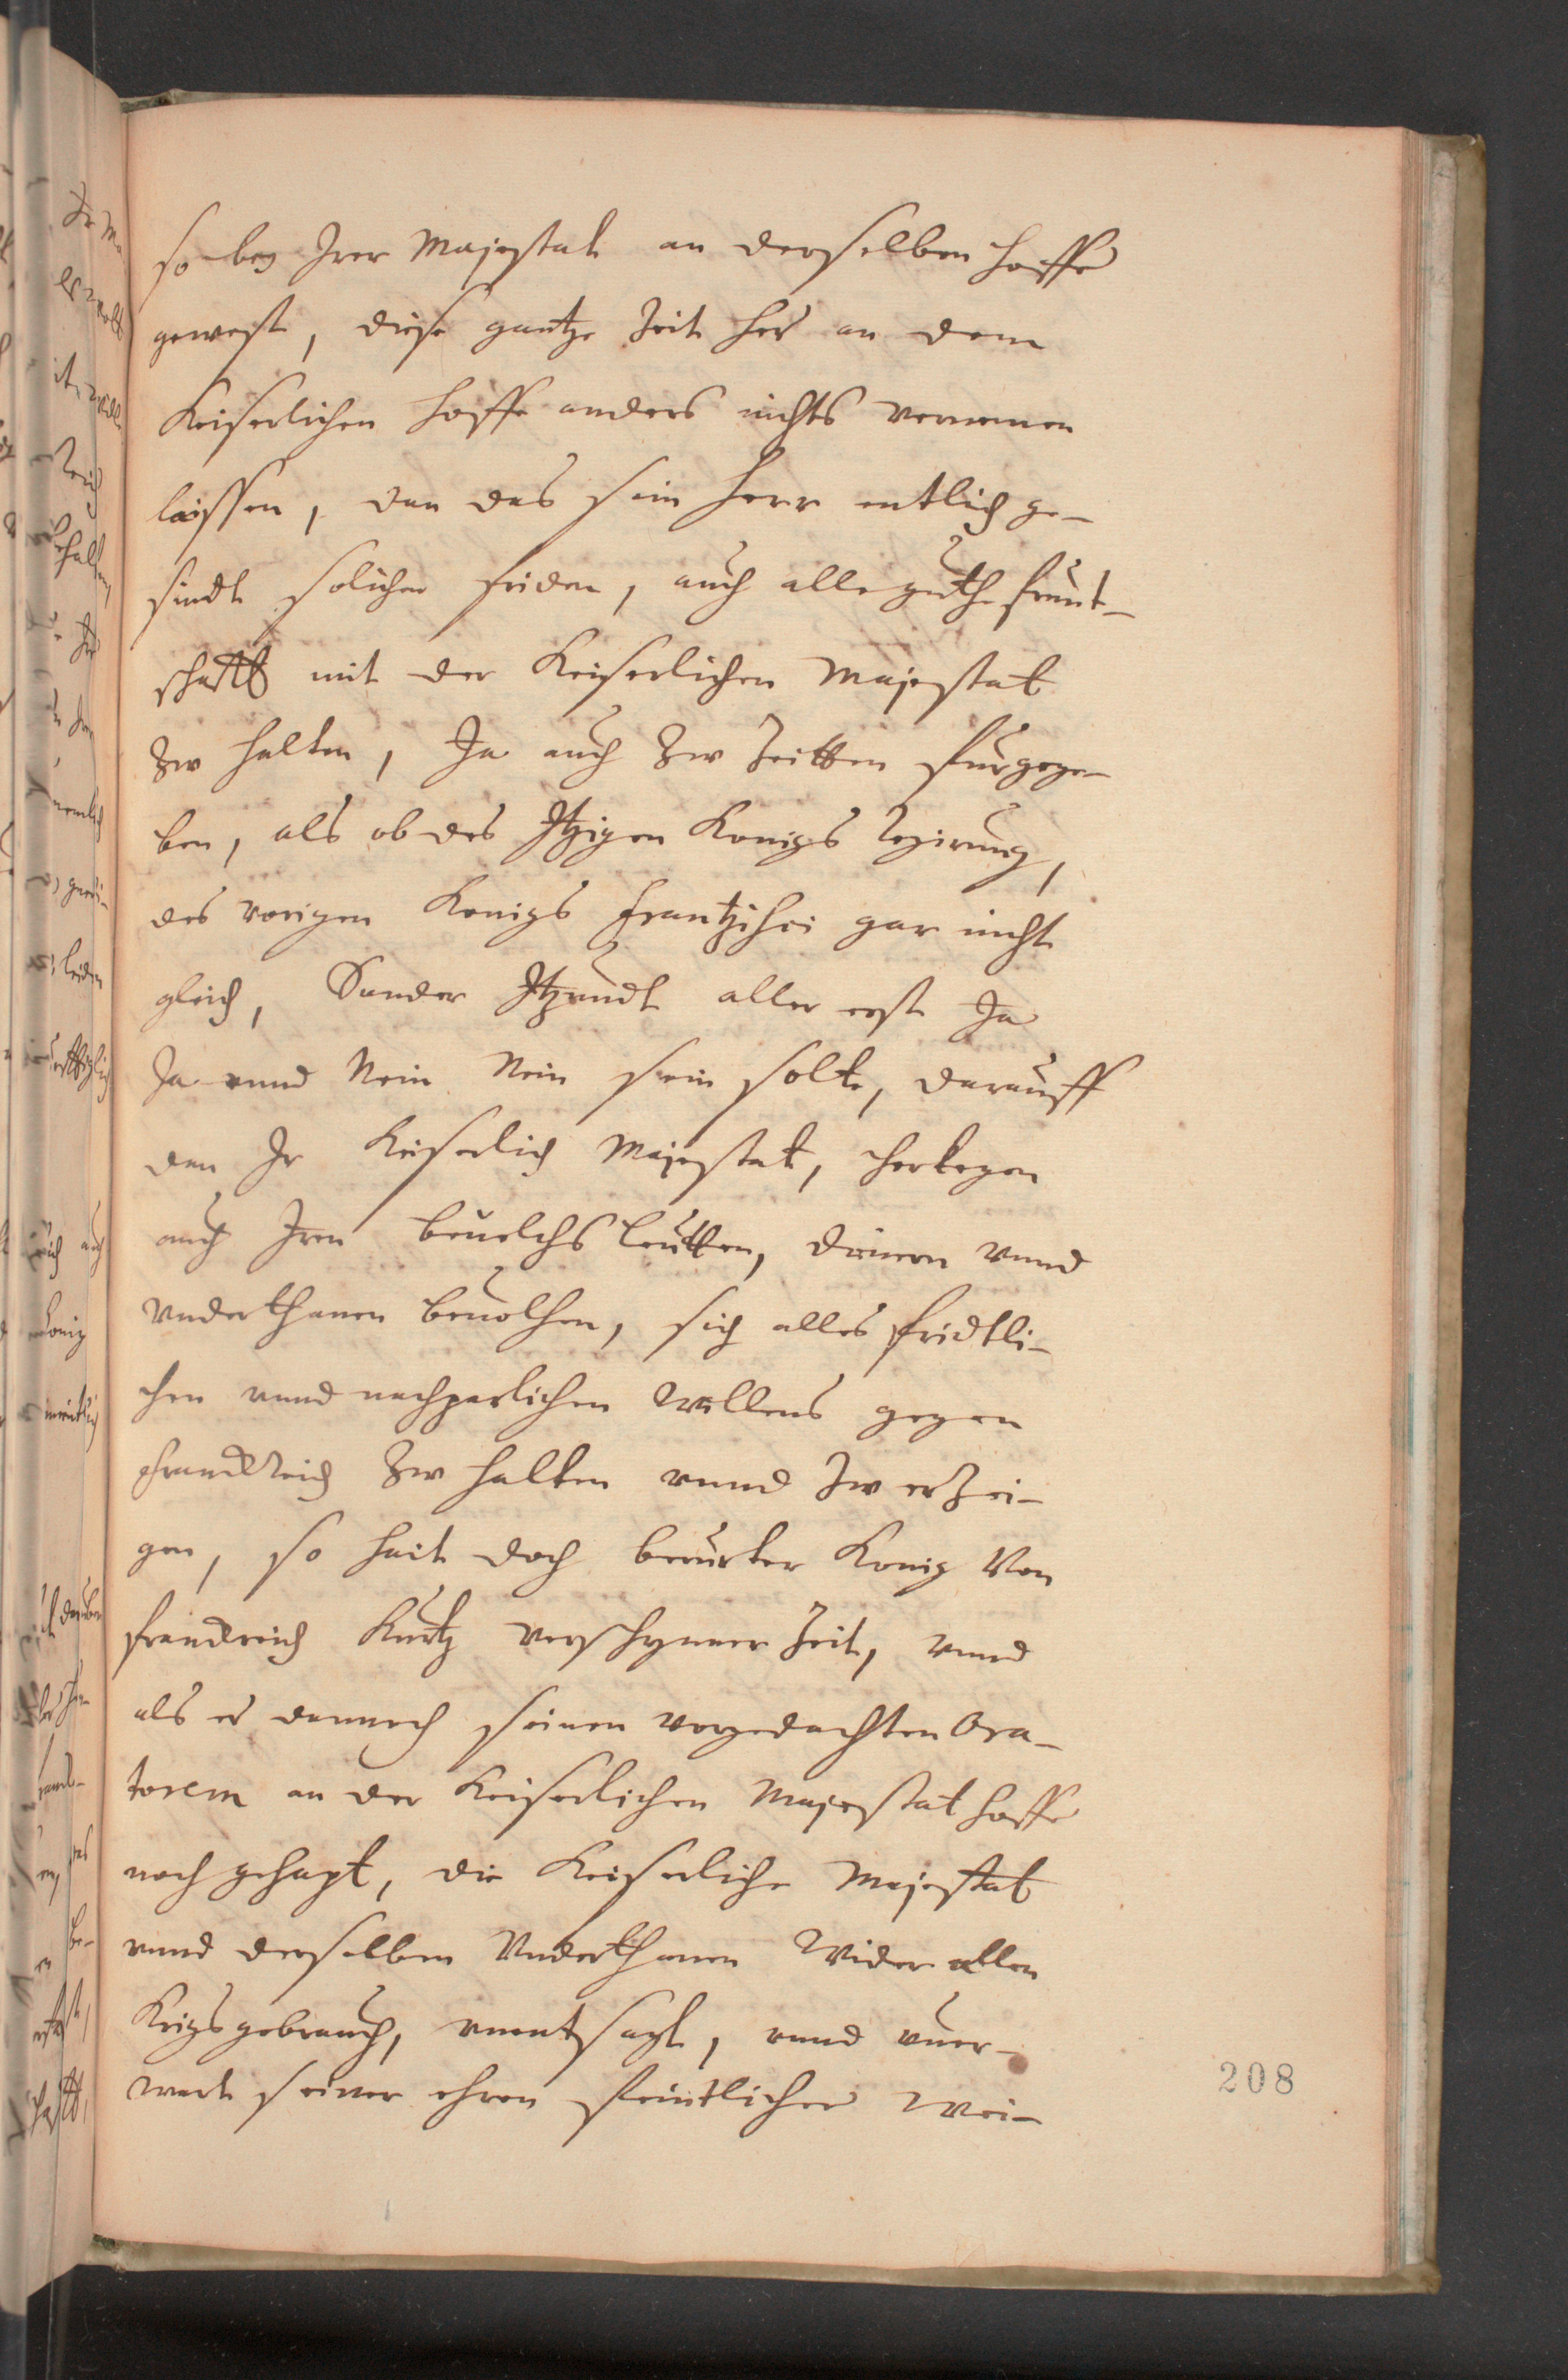 so bey Irer Majestat an derselben hoiffe
gewest, diese gantze Zeit her an dem
Keiserlichen hoiffe anders nichts vernemen
laissen, dan das sein herr entlich ge-
sindt solichen friden, auch alle guthe frunt-
schafft mit der Keiserlichen Majestat
zw halten, Ja auch zw Zeitten furgege-
ben, als ob des Itzigen Konigs Regirung,
des vorigen Konigs Frantzisci gar nicht
gleich, Sonder Itzundt aller erst Ja
Ja vnnd Nein Nein sein solte, darauff
dan Ir Keiserlich Majestat, hertegen
auch Iren beuelchs leutten, dienern vnnd
vnderthanen beuolhen, sich alles fridtli-
chen vnnd nachparlichen Willens gegen
Franckreich zw halten vnnd zw erzei-
gen, so hait doch berurter Konig Von
franckreich Kurtz verschynner Zeit, vnnd
als er dennoch seinen vorgedachten Ora-
torem an der Keiserlichen Majestat hoffe
noch gehapt, die Keiserliche Majestat
vnnd derselben Vnderthanen Wider allen
Krigsgebrauch, vnentsagt, vnnd vuer-
wart seiner ehren feintlicher Wei-
208